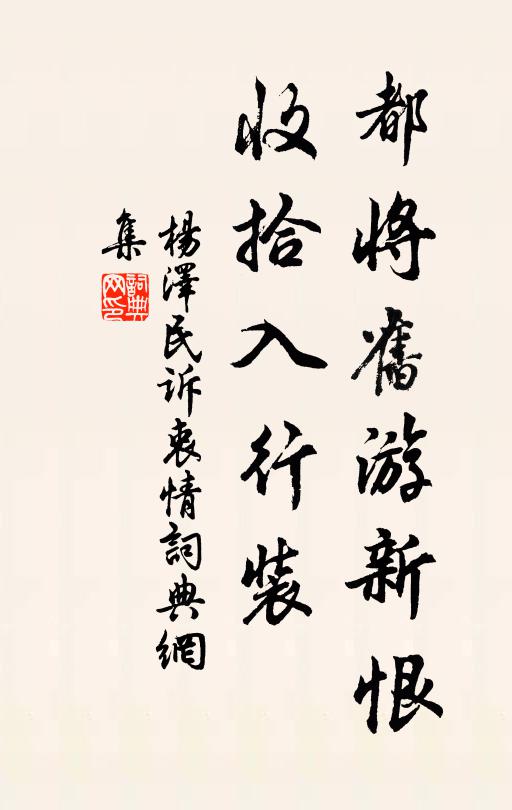 都將舊游新恨
收拾入行裝
楊澤民訴衷情詞典網
集
詞典网印